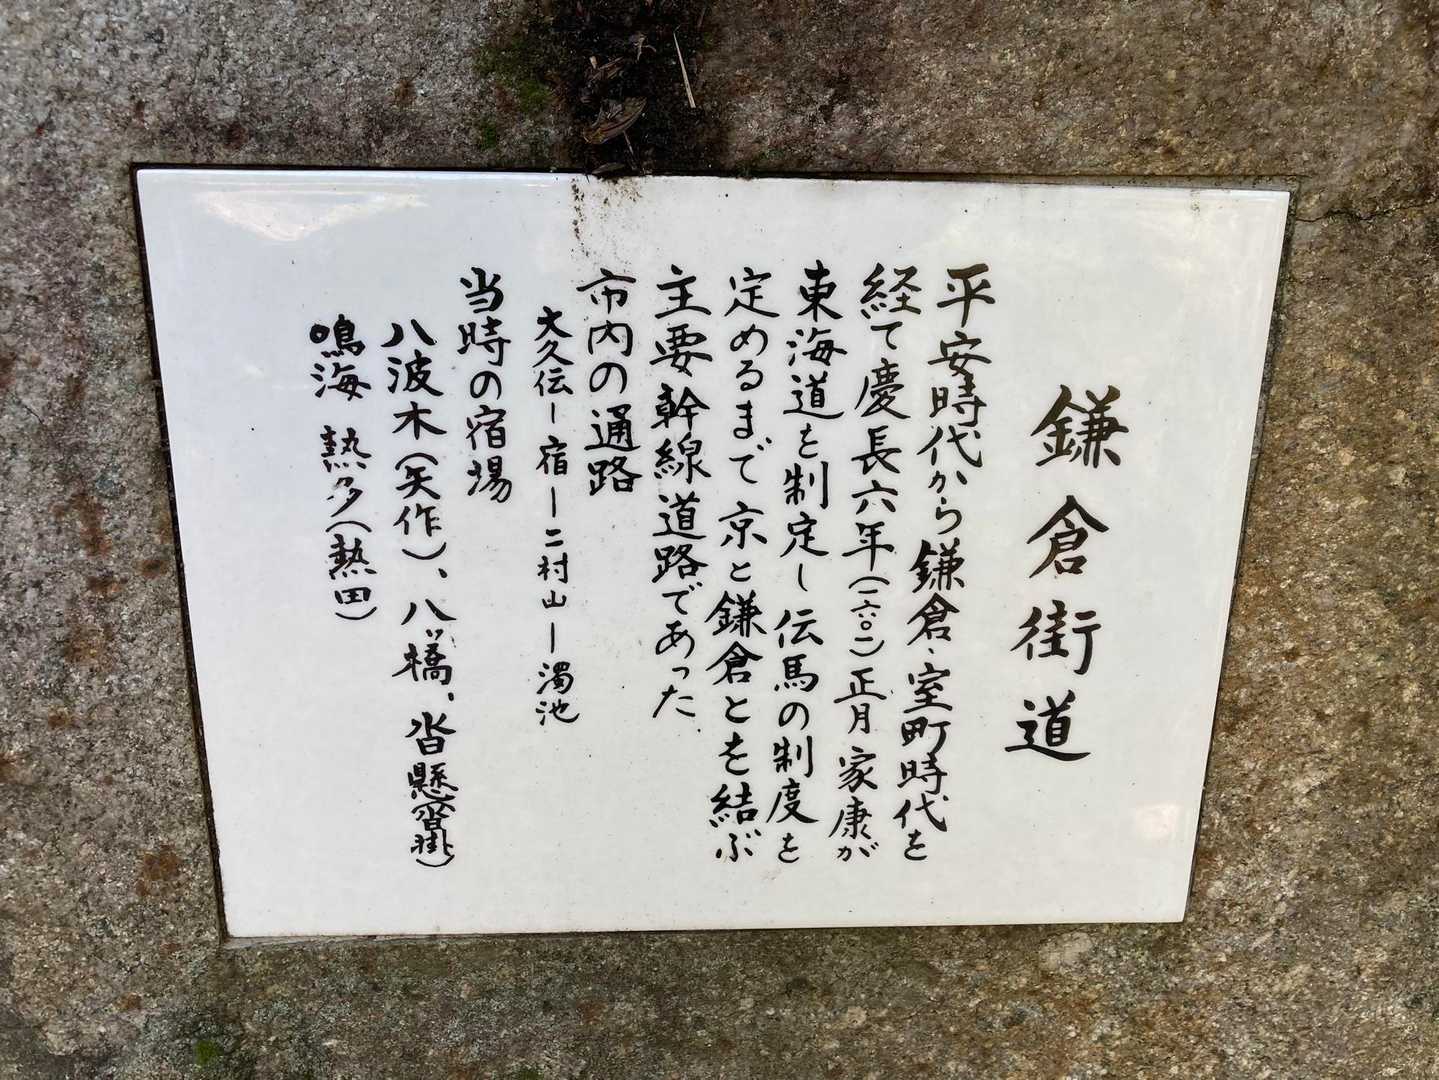 鎌倉街道
平安時代から鎌倉・室町時代を
経て慶長六年(一六〇一)正月家康が
東海道を制定し伝馬の制度を
定めるまで京と鎌倉とを結ぶ
主要幹線道路であった
市内の通路
大久伝ー宿ー二村山ー濁池
当時の宿場
八波木(矢作)、八ッ橋、沓懸(沓掛)
鳴海 熱多(熱田)